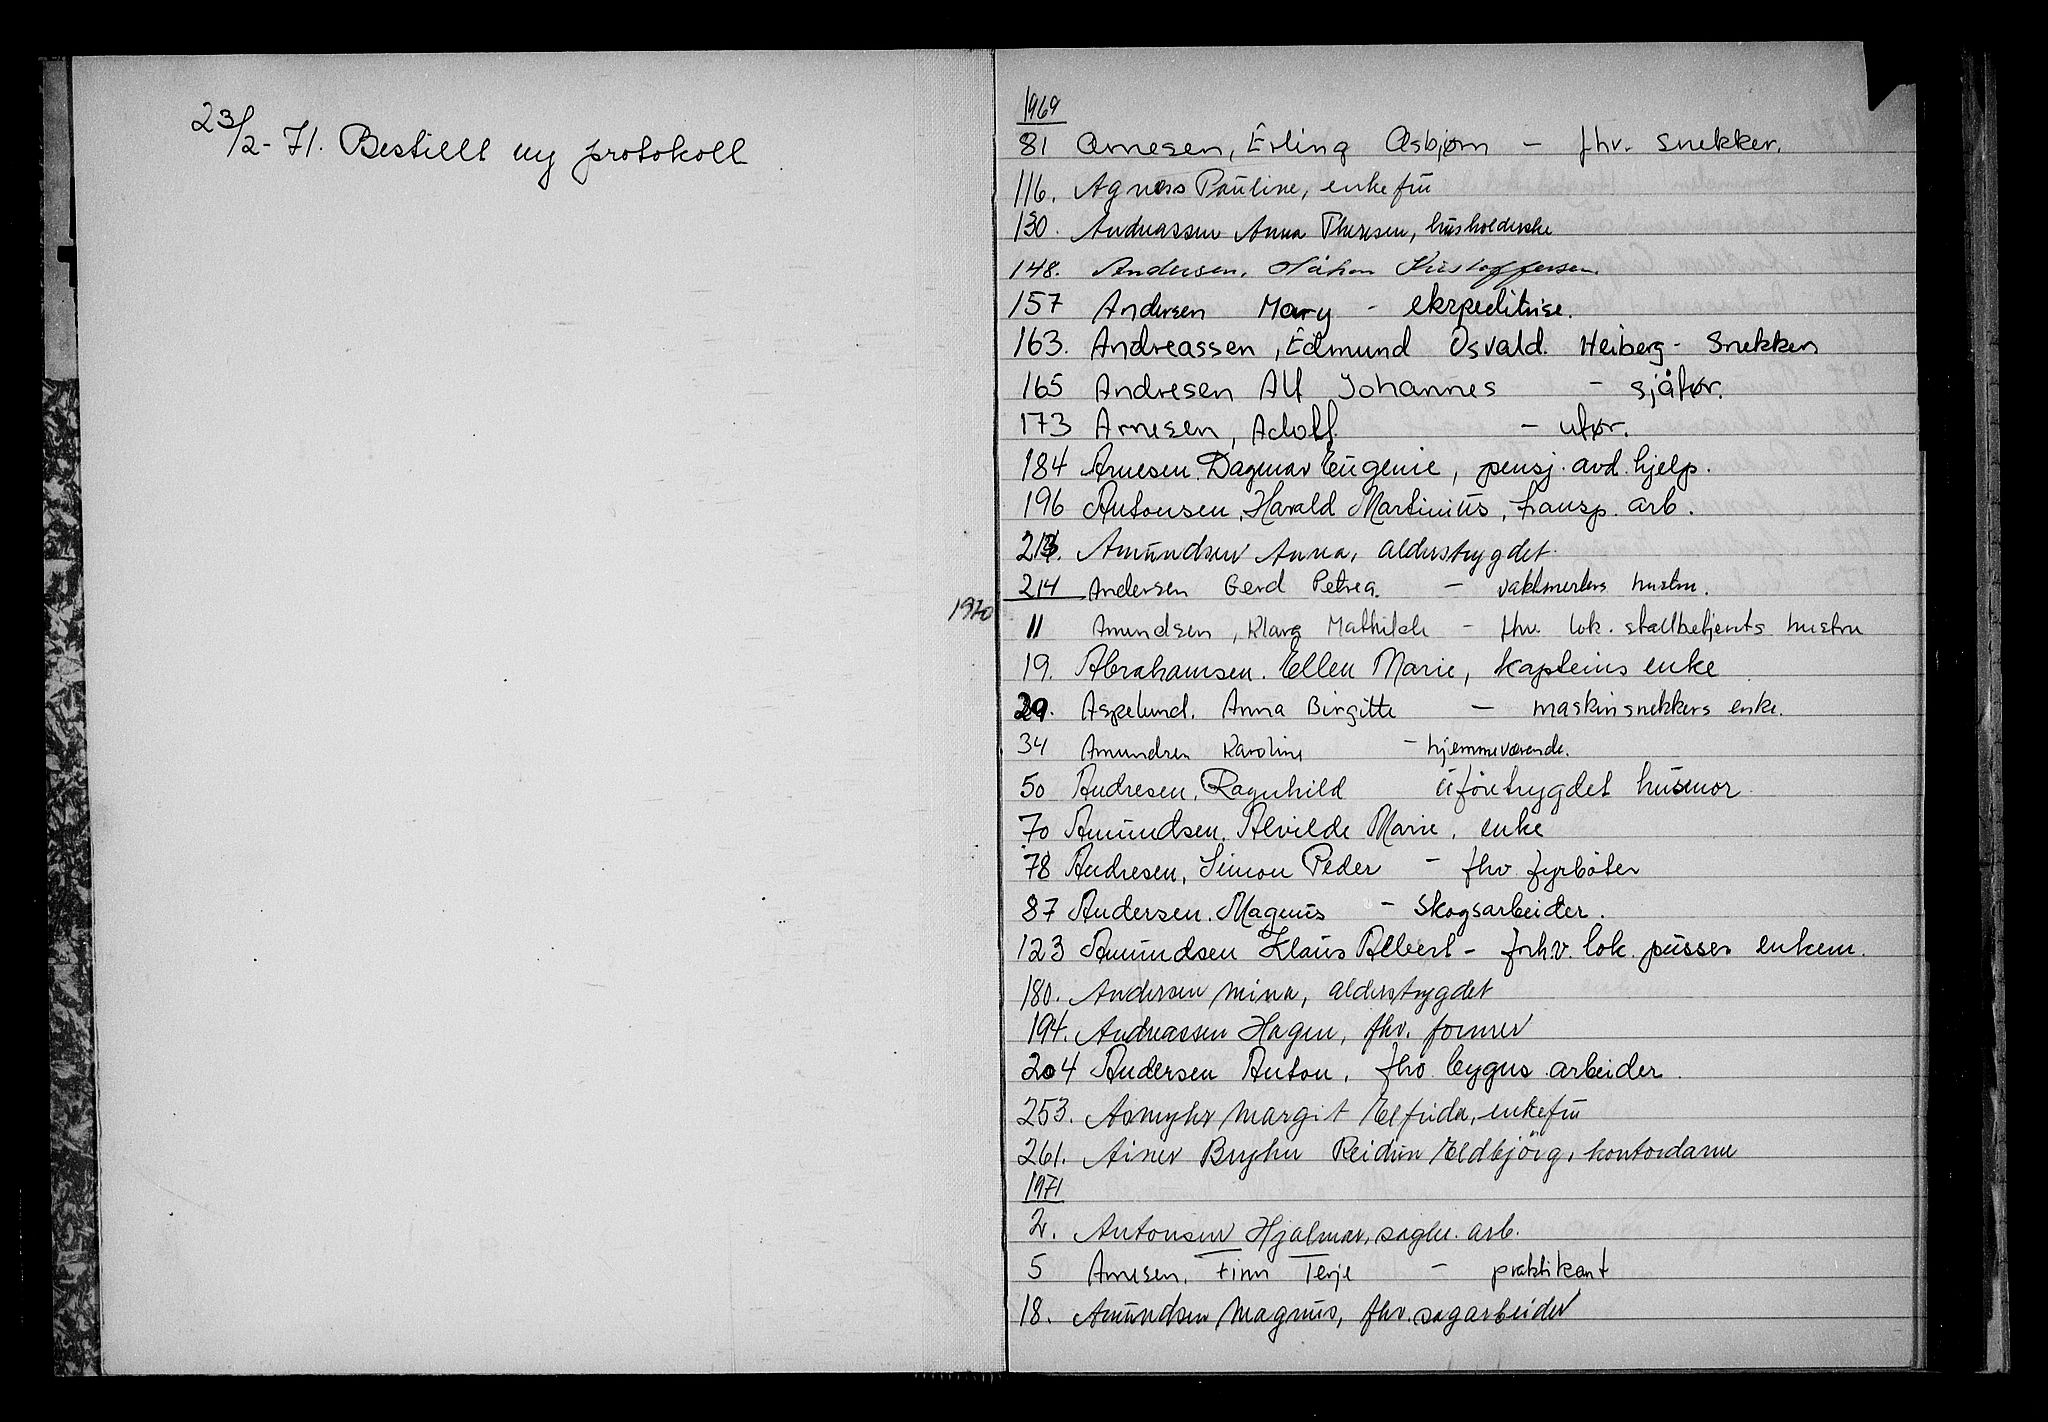 23/2-71. Bestillt ny protokoll
1969
81 Arnesen, Erling Asbjørn - fhv. snekker.
116. Agness Pauline, enkefru
130. Andreassen Anna Theresen, husholderske
148. Andersen, Håkon Kristoffersen
157 Andersen Mary - ekspeditrise.
163. Andreassen, Edmund Osvald. Heiberg - Snekker
165 Andresen Alf Johannes - sjåfør.
173 Arnesen, Adolf. - ufør.
184 Arnesen. Dagmar Eugenie, pensj. avd. hjelp.
196 Antonsen, Harald Martinius, transp. arb.
213. Amundsen Anna, alderstrygdet.
214 Andersen Gerd Petrea. - vaktmesters hustru.
1970
11 Amundsen, Klara Mathilde - fhv. lok. stallbetjents hustru
19. Abrahamsen. Ellen Marie, kapteins enke
29. Aspelund. Anna Birgitte - maskinsnekkers enke.
34 Amundsen Karoline - hjemmeværende.
50 Andresen, Ragnhild uföretrygdet husmor
70 Amundsen. Alvilde Marie, enke
78 Andresen, Simon Peder - fhv fyrböter
87 Andersen. Magnus - Skogsarbeider.
123 Amundsen Klaus Albert - frhv. lok. pusser enkem.
180. Andersen Mina, alderstrygdet
194. Andreassen Hagen, fhv. former
204 Andersen Anton, fhv bygns arbeider.
253. Asmyhr Margit Elfrida, enkefru
261. Ainer Bryhn Reidun Eldbjörg, kontordame
1971
2. Antonsen Hjalmar, sagbr. arb.
5 Arnesen, Finn Terje - praktikant
18. Amundsen Magnus, fhv. sagarbeider